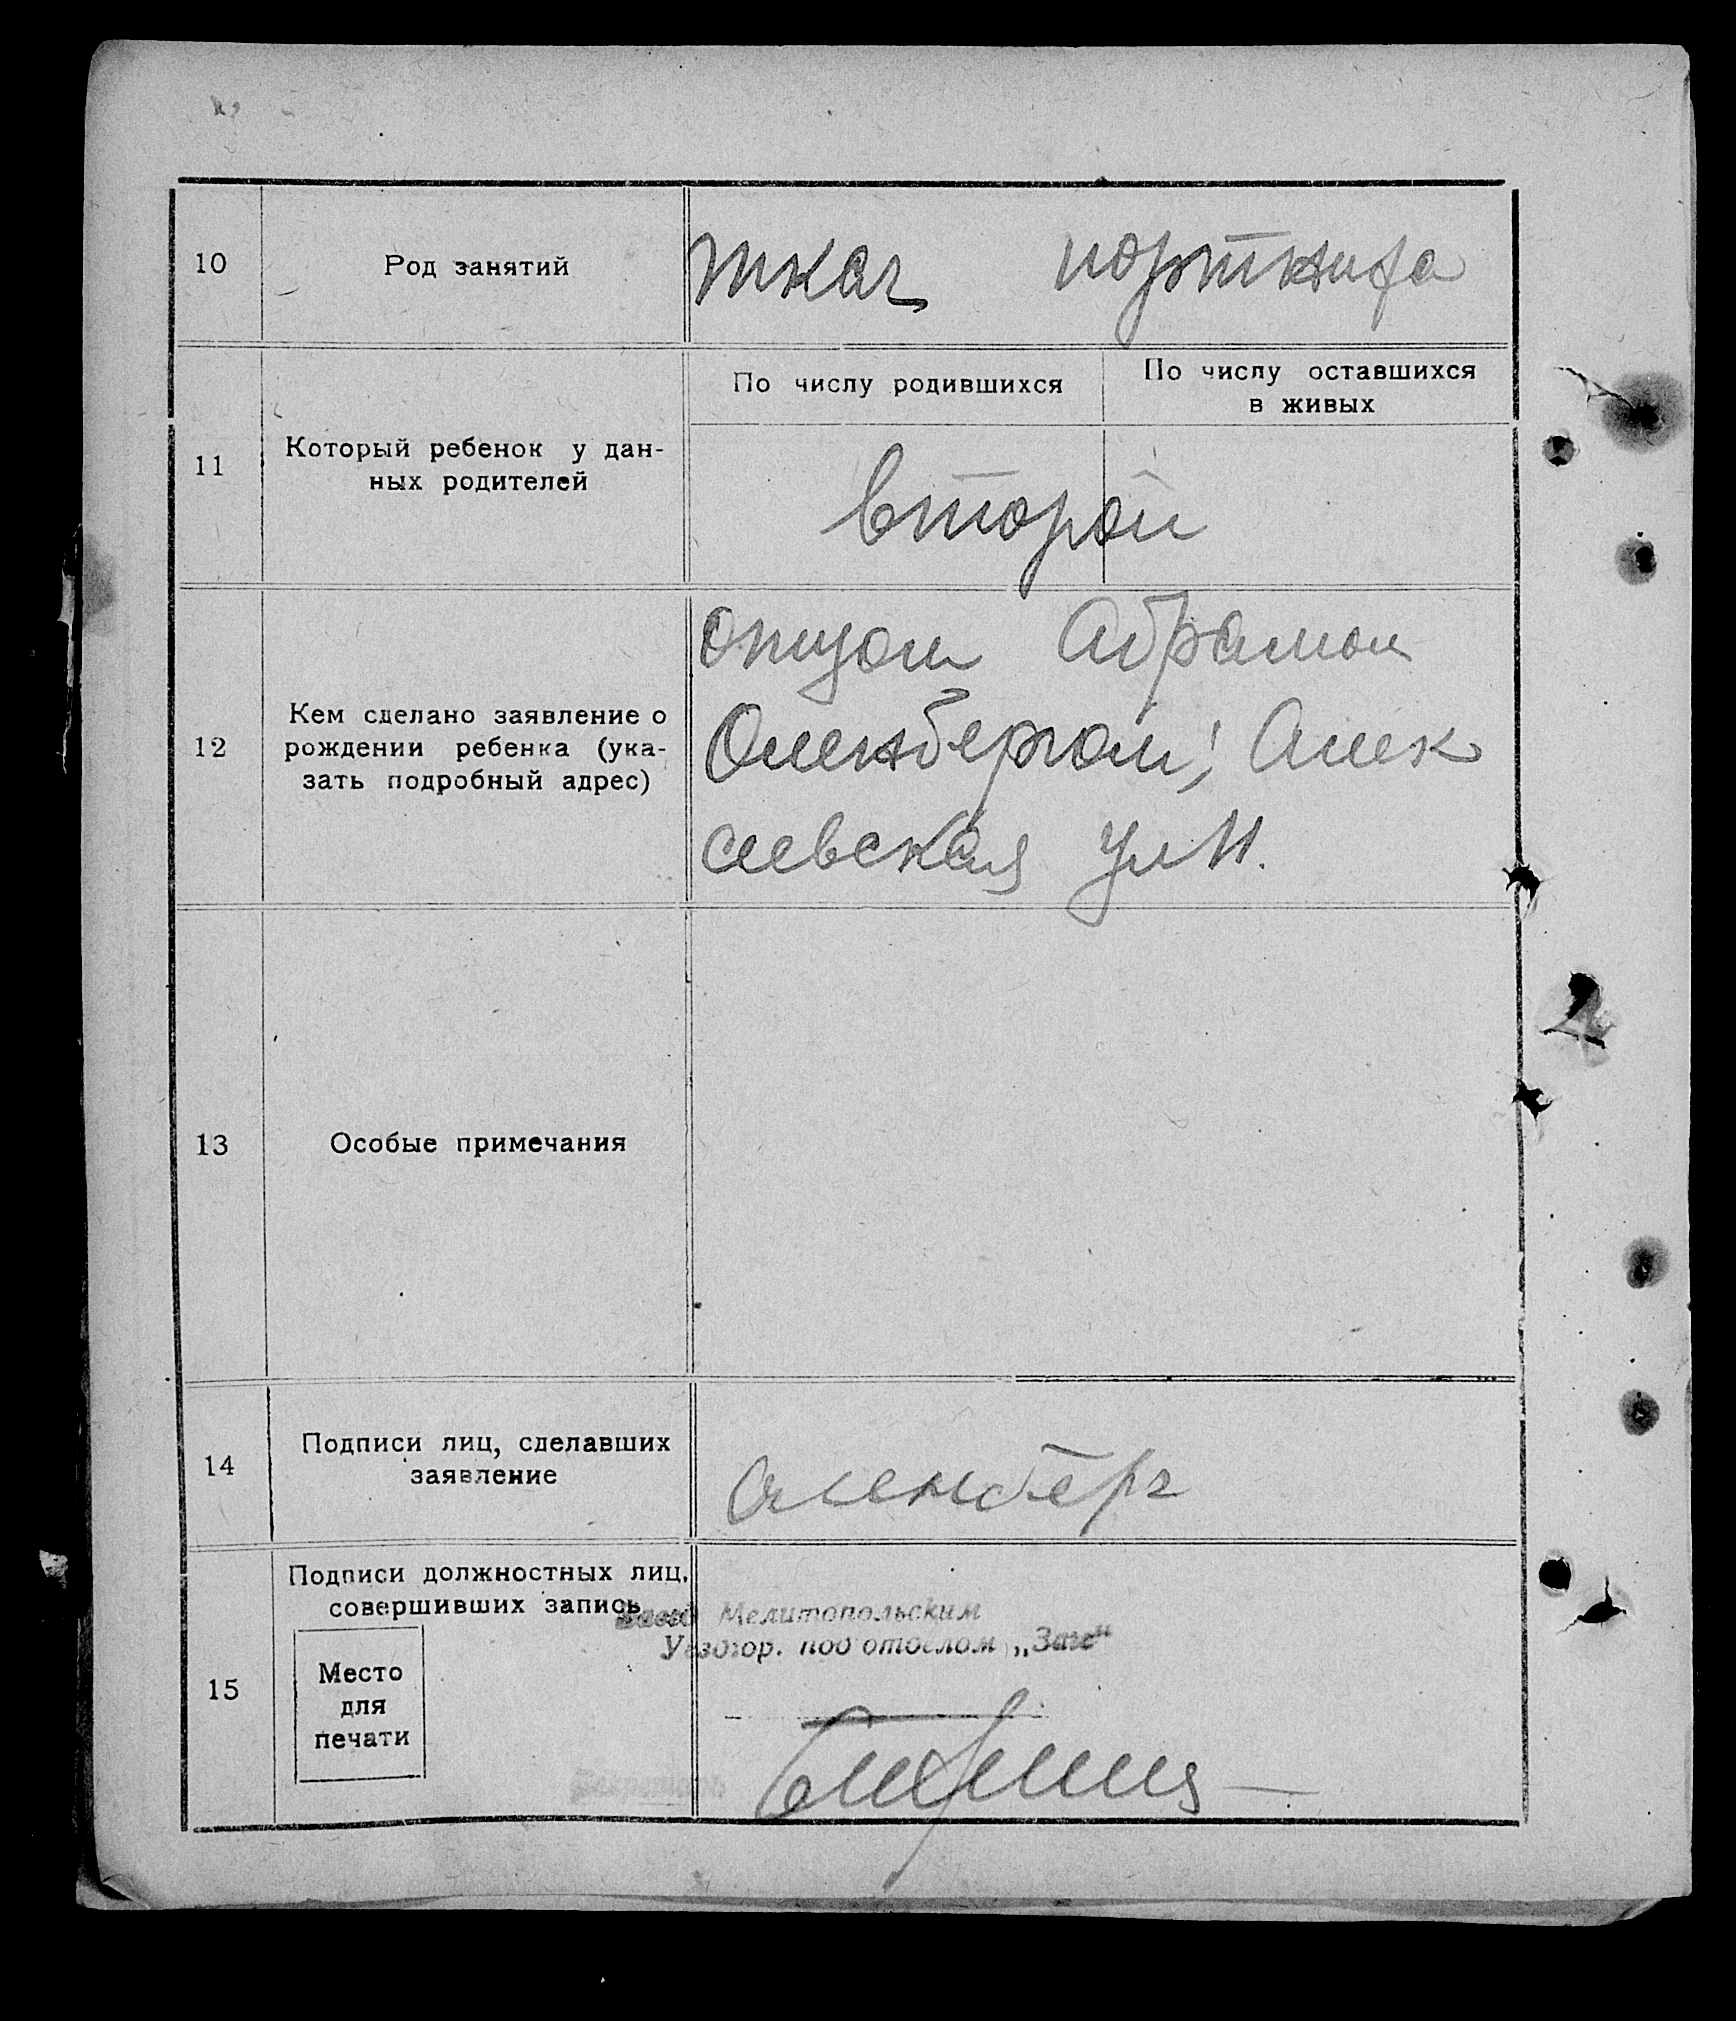 10
Род занятий
ткач портниха
11
Который ребенок у дан-
ных родителей
По числу родившихся
По числу оставшихся
в живых
второй
12
Кем сделано заявление о
рождении ребенка (ука-
зать подробный адрес)
отцом Абрамом
Оленбергом; Алек
сеевская ул
13
Особые примечания
14
Подписи лиц, сделавших
заявление
Оленберг
15
Подписи должностных лиц,
совершивших запись
Мелитопольским
Уездгор. под отделом „Загс“
Место
для
печати
Секретарь